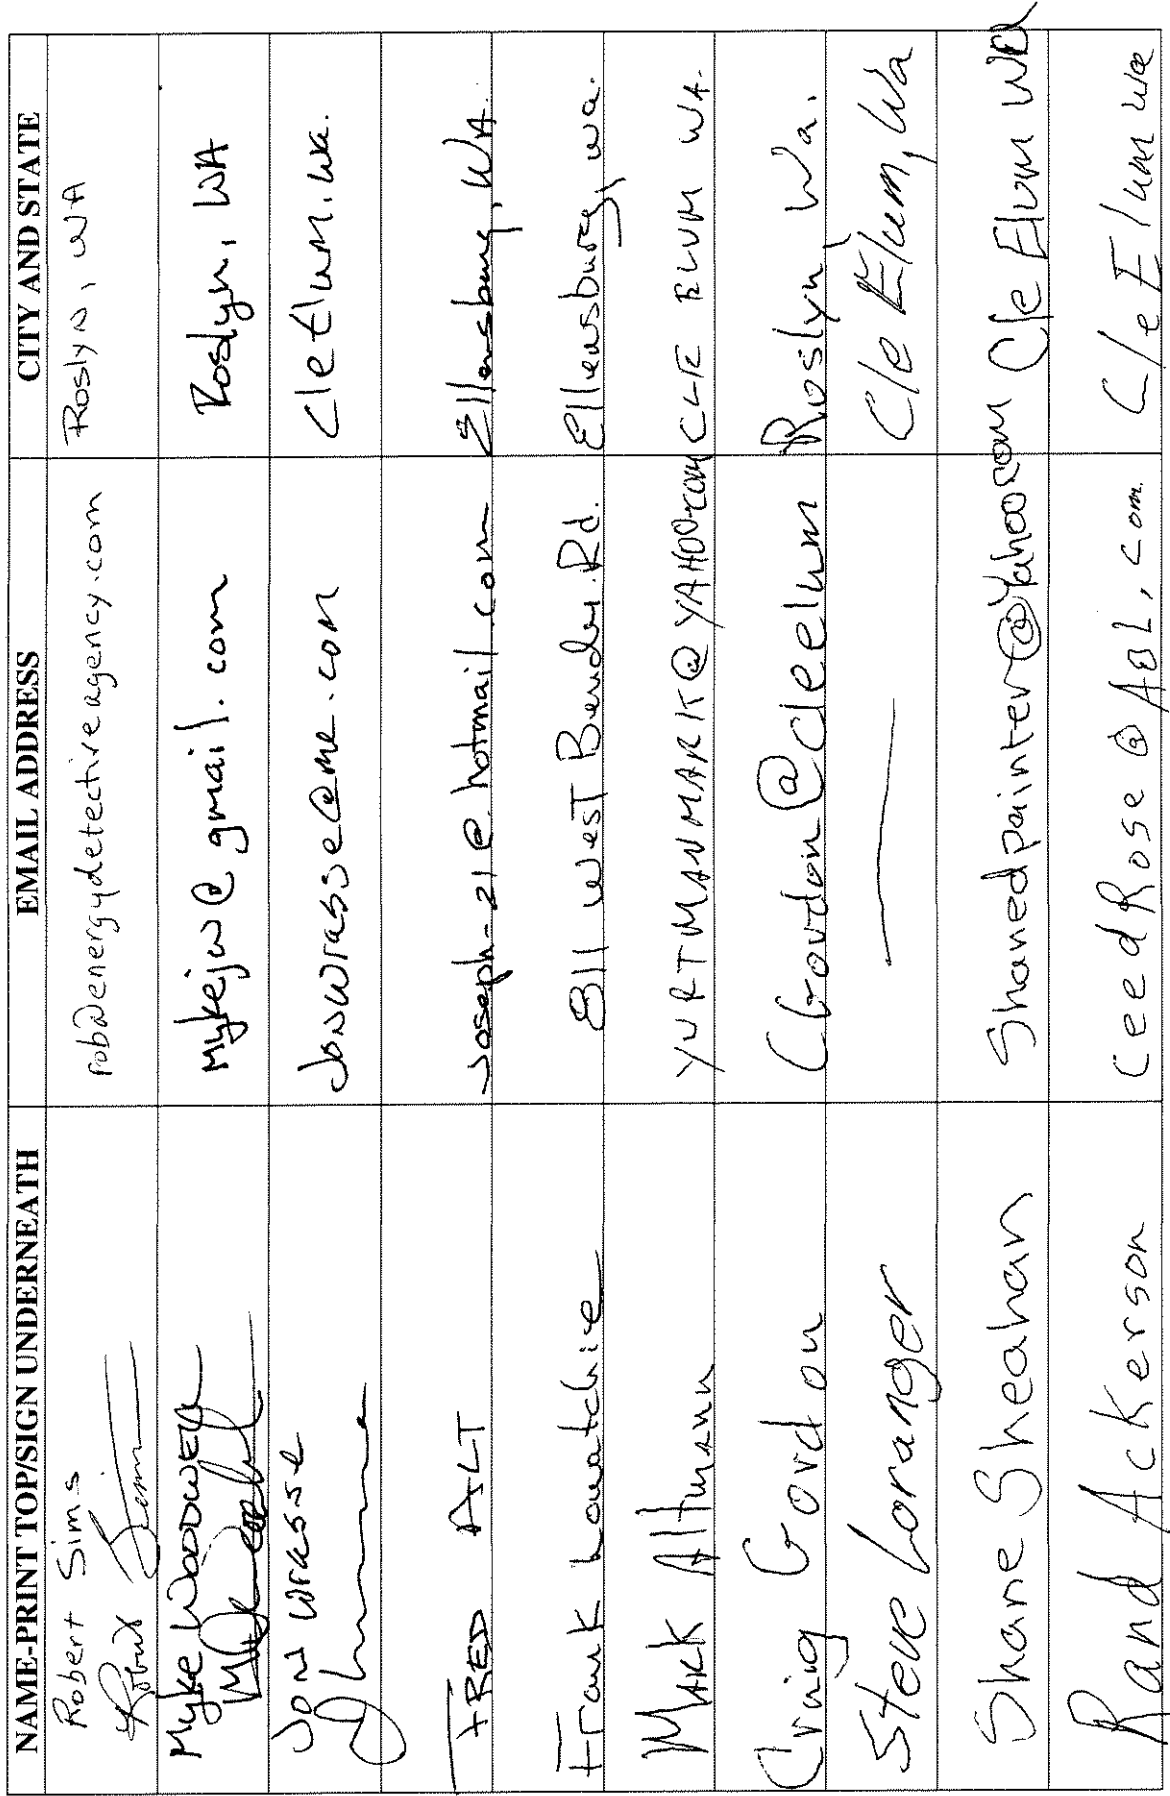 NAME-PRINT TOP/SIGN UNDERNEATH EMAIL ADDRESS CITY AND STATE
Robert Sims rob@energydetectiveagency.com Roslyn, WA
Myke Woodwell Mykejw@gmail.com Roslyn, WA
Jon Wrasse Jonwrasse@me.com Cle Elum, wa.
FRED ALT Joseph-21@hotmail.com Ellensburg, WA.
Frank 811 West Bender Rd. Ellensburg, wa.
Mark Altmann YURTMANMARK@YAHOO.COM CLE ELUM WA.
Craig Gordon Gordon@cleelum Roslyn, Wa.
Steve Loranger — Cle Elum, Wa
Shane Sheahan Shanedpainter@Yahoo.com Cle Elum WA
Rand Ackerson CeedRose@AOL.com Cle Elum wa